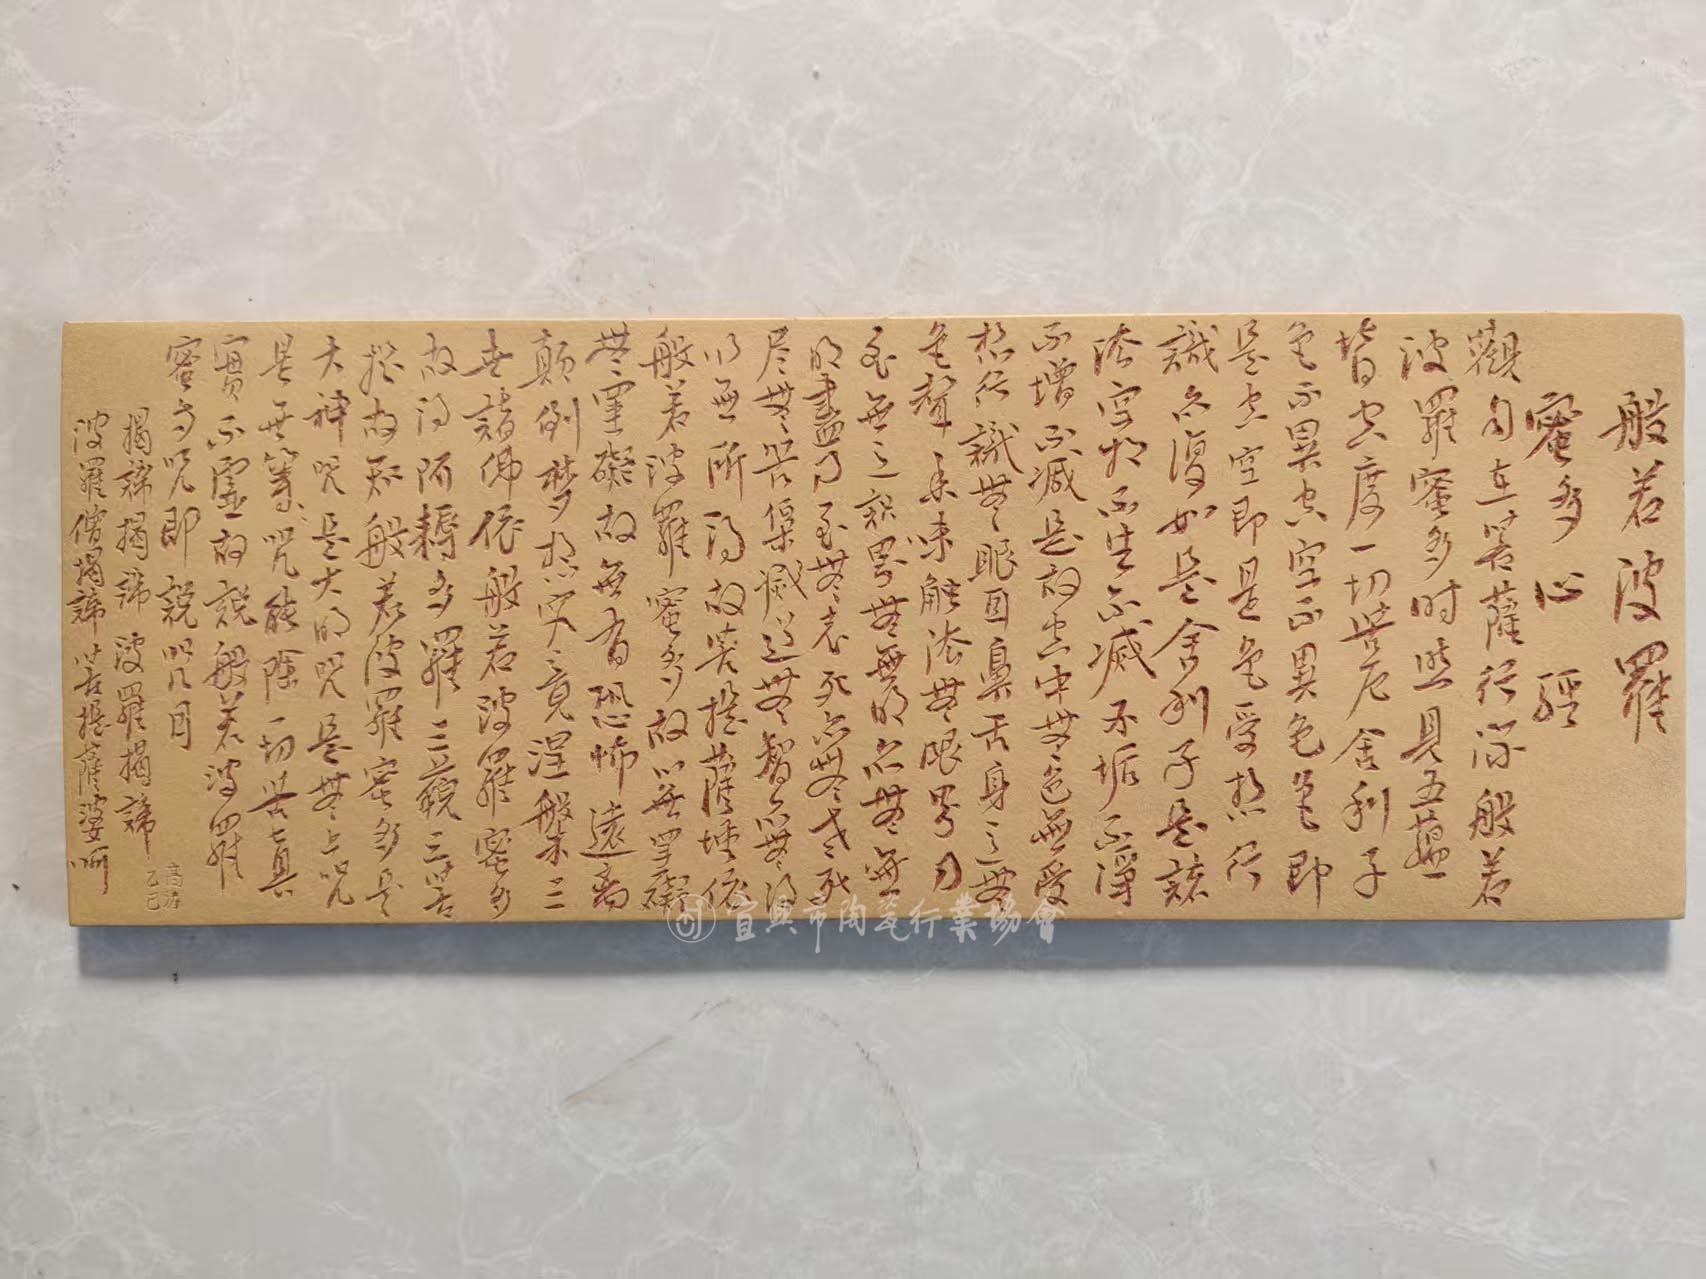 般若波羅
蜜多心經
觀自在菩薩行深般若
波羅蜜多時照見五蘊
皆空度一切苦厄舍利子
色不異空空不異色色即
是空空即是色受想行
識亦復如是舍利子是諸
法空相不生不滅不垢不淨
不增不減是故空中無色無受
想行識無眼耳鼻舌身意無
色聲香味觸法無眼界乃
至無意識界無無明亦無無
明盡乃至無老死亦無老死
盡無苦集滅道無智亦無得
以無所得故菩提薩埵依
般若波羅蜜多故心無罣礙
無罣礙故無有恐怖遠離
顛倒夢想究竟涅槃三
世諸佛依般若波羅蜜多
故得阿耨多羅三藐三菩
提故知般若波羅蜜多是
大神咒是大明咒是無上咒
是無等等咒能除一切苦真
實不虛故說般若波羅
蜜多咒即說咒曰
揭諦揭諦 波羅揭諦
波羅僧揭諦 菩提薩婆訶
乙巳
宜興市陶瓷行業協會